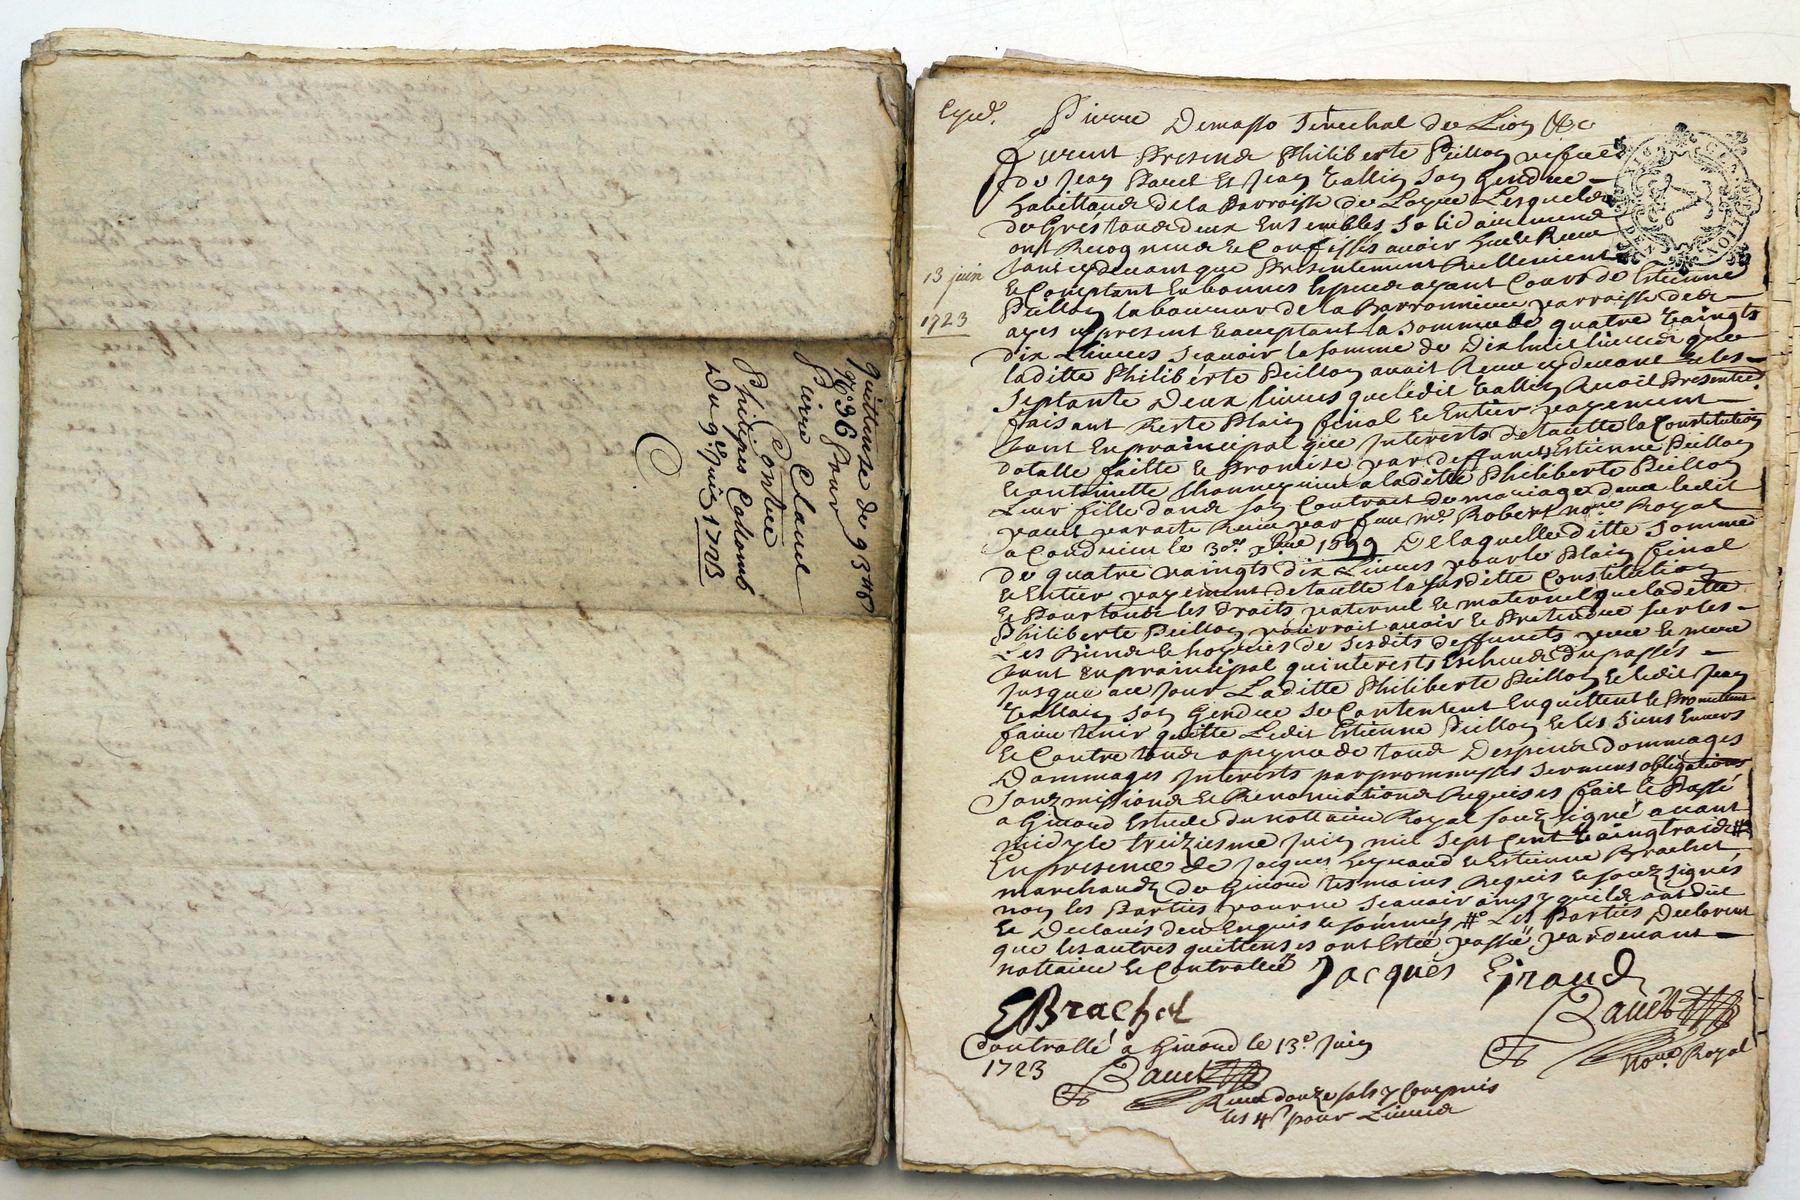 quittense de 93 lt
N° 36 pour
Pierre Claude
Contre
Philippes Collomb
Du 9e juin 1723
Exped.
Pierre Demasso Senechal de Lion &c
furent Presens Philiberte Peillon vefue
de Jean Et Jean Vallin son Gendre
habittans de la Parroisse de Lesquels
de Gré tous deux Ensembles Solidairement
ont Recognus et Confessés auoir Heu et Receu
13 juin
tant cy deuant que Presentement Reellement
et Comptant En bonnes Espèces ayant Cours de Estienne
1723
Peillon laboureur de la parroisse des
ayes cy present et acceptant la Somme de quatre Vaingts
dix Liures Scauoir la Somme de Dix huit liures que
laditte Philiberte Peillon auoit Receu cy deuant et les
Septante Deux liures que ledit Vallin Recoit Presentemt
faisant Reste Plain final et Entier payement
tant En praincipal que Interests de toutte la Constitution
dotalle faitte et Promise par deffuncts Estienne Peillon
et antoinette a laditte Philiberte Peillon
Leur fille dans son Contrait de mariage deue ledit
Receu par feu Me Robert nore Royal
a Condrieu le 30e xbre 1699 De laquelle ditte Somme
de quatre vaingts dix Liures pour le Plain final
et Entier payement de toutte la susditte Constitution
et Pour tous les Droits paternel et maternel que laditte
Philiberte Peillon pourroit auoir et Pretendre sur les
Les Biens et hoyries de Sesdits deffuncts pere et mere
tant En praincipal quinterests Escheus du passés
Jusqua ce Jour Laditte Philiberte Peillon et ledit Jean
Vallain son Gendre se Contentent En quittent et Promettent
faire tenir quitte Ledit Estienne Peillon et les Siens Enuers
et Contre tous a peyne de tous Despens dommages
Dommages Interests par promesses Sermens obligations
Souzmissions et Renonciations Requises fait et Passé
a Giuord Estude du nottaire Royal souz signé auant
midy le treiziesme Juin mil sept Cent Vaingt trois #
En presence de Jacques Eyraud et Estienne Brachet
marchands de Giuord tesmoins Requis et souz signés
non les Parties pour ne Scauoir ainsy quils ont dit
et Declairés deu Enquis et sommés # Les Parties Declarent
que les autres quittenses ont Esté passé par deuant
nottaire et Controllés
Jacques Eiraud
EBrachet
Bauet
nore Royal
Controllé a Giuord le 13e Juin
1723
Bauet
Receu douze sols y Compris
les 4 s pour Liures